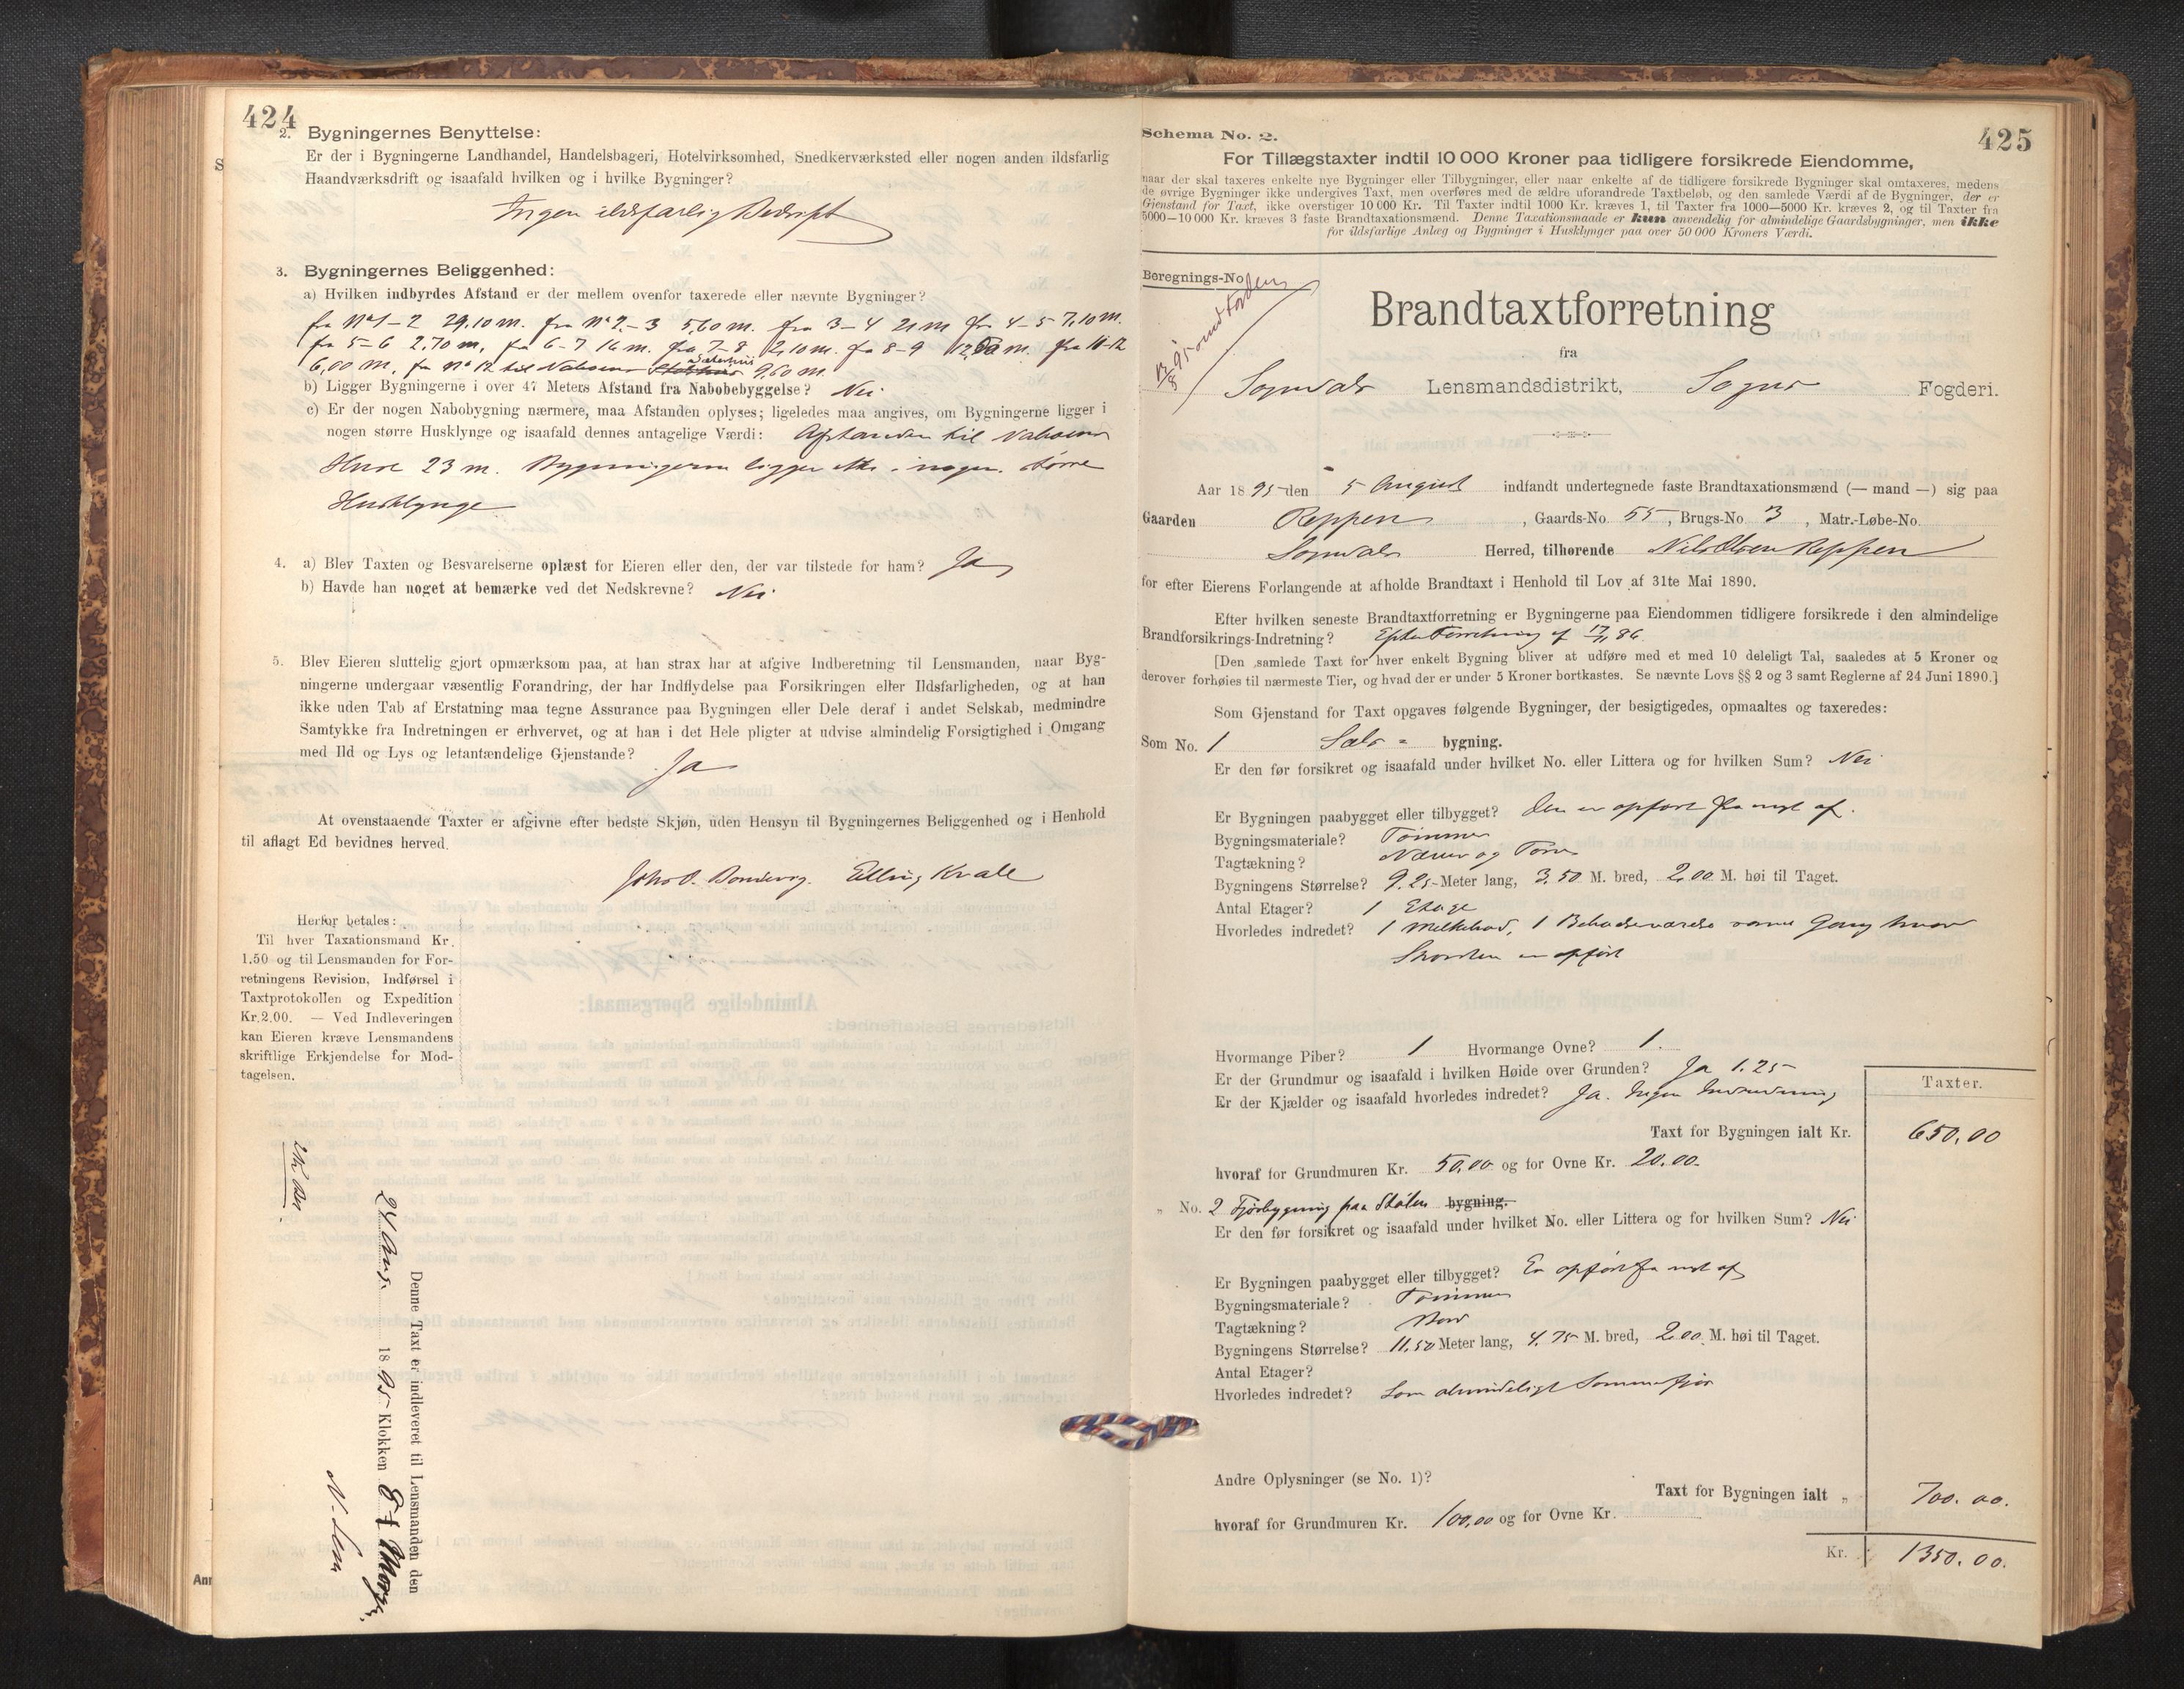 424
2. Bygningernes Benyttelse:
Er der i Bygningerne Landhandel, Handelsbageri, Hotelvirksomhed, Snedkerværksted eller nogen anden ildsfarlig
Haandværksdrift og isaafald hvilken og i hvilke Bygninger?
Ingen ildsfarlig Bedrift
3. Bygningernes Beliggenhed:
a) Hvilken indbyrdes Afstand er der mellem ovenfor taxerede eller nævnte Bygninger?
fra No 1–2 29,10 m. fra No 2–3 5,60 m. fra 3–4 21 m fra 4–5 7,10 m.
fra 5–6 2,70 m, fra 6–7 16 m. fra 7–8 2,10 m. fra 8–9 m. fra 11–12
6,00 m. fra No 12 til Naboens 9,60 m.
b) Ligger Bygningerne i over 47 Meters Afstand fra Nabobebyggelse? Nei
c) Er der nogen Nabobygning nærmere, maa Afstanden oplyses; ligeledes maa angives, om Bygningerne ligger i
nogen større Husklynge og isaafald dennes antagelige Værdi: Afstanden til Naboens
Huse 23 m. Bygningerne ligger ikke i nogen større
Husklynge
4. a) Blev Taxten og Besvarelserne oplæst for Eieren eller den, der var tilstede for ham? Ja
b) Havde han noget at bemærke ved det Nedskrevne? Nei
5. Blev Eieren sluttelig gjort opmærksom paa, at han strax har at afgive Indberetning til Lensmanden, naar Byg-
ningerne undergaar væsentlig Forandring, der har Indflydelse paa Forsikringen eller Ildsfarligheden, og at han
ikke uden Tab af Erstatning maa tegne Assurance paa Bygningen eller Dele deraf i andet Selskab, medmindre
Samtykke fra Indretningen er erhvervet, og at han i det Hele pligter at udvise almindelig Forsigtighed i Omgang
med Ild og Lys og letantændelige Gjenstande?
Ja
At ovenstaaende Taxter er afgivne efter bedste Skjøn, uden Hensyn til Bygningernes Beliggenhed og i Henhold
til aflagt Ed bevidnes herved.
Elling Kvale
Herfor betales:
Til hver Taxationsmand Kr.
1.50 og til Lensmanden for For-
retningens Revision, Indførsel i
Taxtprotokollen og Expedition
Kr.2.00. — Ved Indleveringen
kan Eieren kræve Lensmandens
skriftlige Erkjendelse for Mod-
tagelsen.
Denne Taxt er indleveret til Lensmanden den
24 Aug. 1895 Klokken 8 f Morg.
425
Schema No. 2.
For Tillægstaxter indtil 10 000 Kroner paa tidligere forsikrede Eiendomme,
naar der skal taxeres enkelte nye Bygninger eller Tilbygninger, eller naar enkelte af de tidligere forsikrede Bygninger skal omtaxeres, medens
de øvrige Bygninger ikke undergives Taxt, men overføres med de ældre uforandrede Taxtbeløb, og den samlede Værdi af de Bygninger, der er
Gjenstand for Taxt, ikke overstiger 10 000 Kr. Til Taxter indtil 1000 Kr. kræves 1, til Taxter fra 1000—5000 Kr. kræves 2, og til Taxter fra
5000—10 000 Kr. kræves 3 faste Brandtaxationsmænd. Denne Taxationsmaade er kun anvendelig for almindelige Gaardsbygninger, men ikke
for ildsfarlige Anlæg og Bygninger i Husklynger paa over 50 000 Kroners Værdi.
Beregnings-No.
Brandtaxtforretning
fra
Sogndals Lensmandsdistrikt, Sogns Fogderi.
Aar 1895 den 5 August indfandt undertegnede faste Brandtaxationsmænd (— mand —) sig paa
Gaarden Reppen, Gaards-No. 55, Brugs-No. 3, Matr.-Løbe-No.
Sogndals Herred, tilhørende Nils Olsen Reppen
for efter Eierens Forlangende at afholde Brandtaxt i Henhold til Lov af 31te Mai 1890.
Efter hvilken seneste Brandtaxtforretning er Bygningerne paa Eiendommen tidligere forsikrede i den almindelige
Brandforsikrings-Indretning? Efter Forretning af 86
[Den samlede Taxt for hver enkelt Bygning bliver at udføre med et med 10 deleligt Tal, saaledes at 5 Kroner og
derover forhøies til nærmeste Tier, og hvad der er under 5 Kroner bortkastes. Se nævnte Lovs §§ 2 og 3 samt Reglerne af 24 Juni 1890.]
Som Gjenstand for Taxt opgaves følgende Bygninger, der besigtigedes, opmaaltes og taxeredes:
Som No. 1 Sels- bygning.
Er den før forsikret og isaafald under hvilket No. eller Littera og for hvilken Sum? Nei
Er Bygningen paabygget eller tilbygget? Den er opført fra nyt af.
Bygningsmateriale? Tømmer
Tagtækning? Næver og Torv
Bygningens Størrelse? 9.25 Meter lang, 3,50 M. bred, 2,00 M. høi til Taget.
Antal Etager? 1 Etage
Hvorledes indredet? 1 Melkebod, 1 Beboelsesværelse samt Gang hvor
Skorsten er opført
Hvormange Piber? 1 Hvormange Ovne? 1.
Er der Grundmur og isaafald i hvilken Høide over Grunden? Ja 1.25
Er der Kjælder og isaafald hvorledes indredet? Ja. Ingen Indredning
Taxter.
Taxt for Bygningen ialt Kr. 650,00
hvoraf for Grundmuren Kr. 50,00 og for Ovne Kr. 20.00.
„ No. 2 Fjøsbygning paa Stølen bygning.
Er den før forsikret og isaafald under hvilket No. eller Littera og for hvilken Sum? Nei
Er Bygningen paabygget eller tilbygget? Er opført fra nyt af
Bygningsmateriale? Tømmer
Tagtækning? Bord
Bygningens Størrelse? 11,50 Meter lang, 4,75 M. bred, 2,00 M. høi til Taget.
Antal Etager?
Hvorledes indredet? Som almindeligt Sommerfjøs
Andre Oplysninger (se No. 1)?
Taxt for Bygningen ialt „ 700.00.
hvoraf for Grundmuren Kr. 100,00 og for Ovne Kr.
Kr. 1350.00.